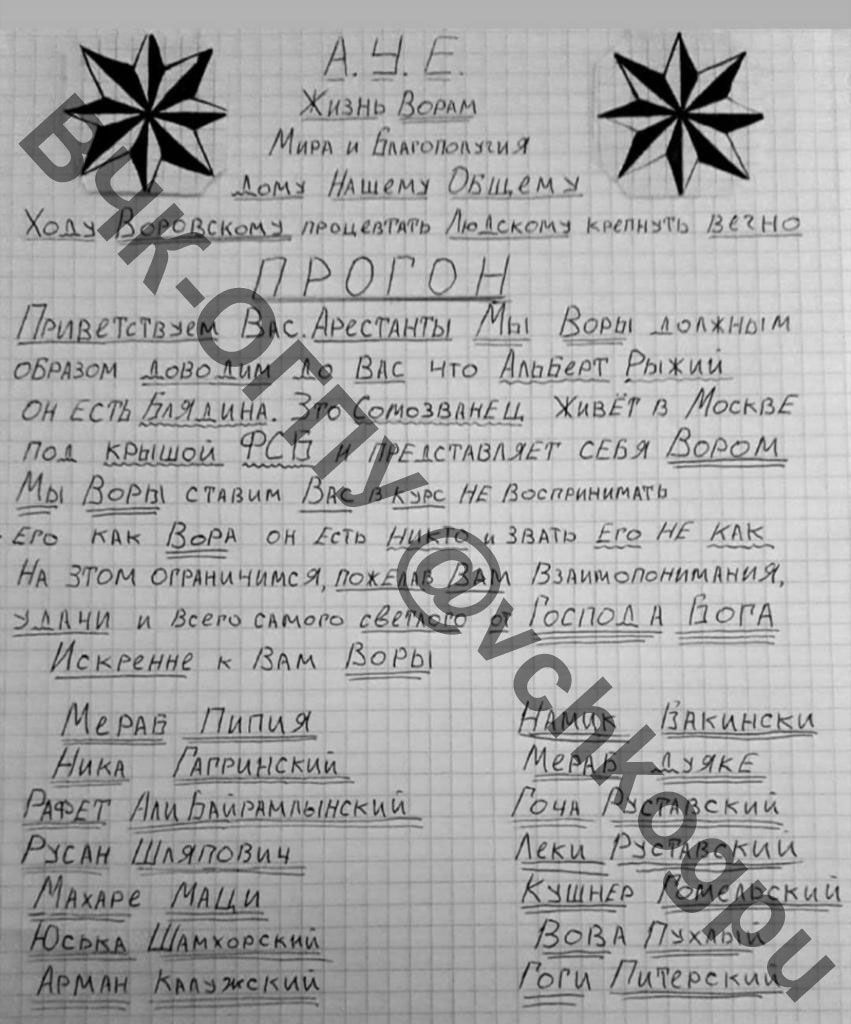 А.У.Е.
Жизнь Ворам
Мира и Благополучия
Дому Нашему Общему
Ходу Воровскому процевтать Людскому крепнуть вечно
ПРОГОН
Приветствуем Вас. Арестанты Мы Воры должным
образом доводим до вас что Альберт Рыжий
он есть Блядина. Это Сомозванец живёт в Москве
под крышой ФСБ и представляет себя Вором
Мы Воры ставим Вас в курс не воспринимать
его как Вора он есть никто и звать Его не как
На этом ограничимся, пожелав Вам Взаимопонимания,
удачи и всего самого светлого от Господа Бога
Искренне к вам Воры
Мераб Пипия
Ника Гагринский
Рафет Али Байрамлынский
Русан Шляпович
Махаре Маци
Юська Шамхорский
Арман Калужский
Намик Бакински
Мераб Дуяке
Гоча Руставский
Леки Руставский
Кушнер Гомельский
Вова Пухлый
Гоги Питерский
ВЧК-ОГПУ @vchkogpu